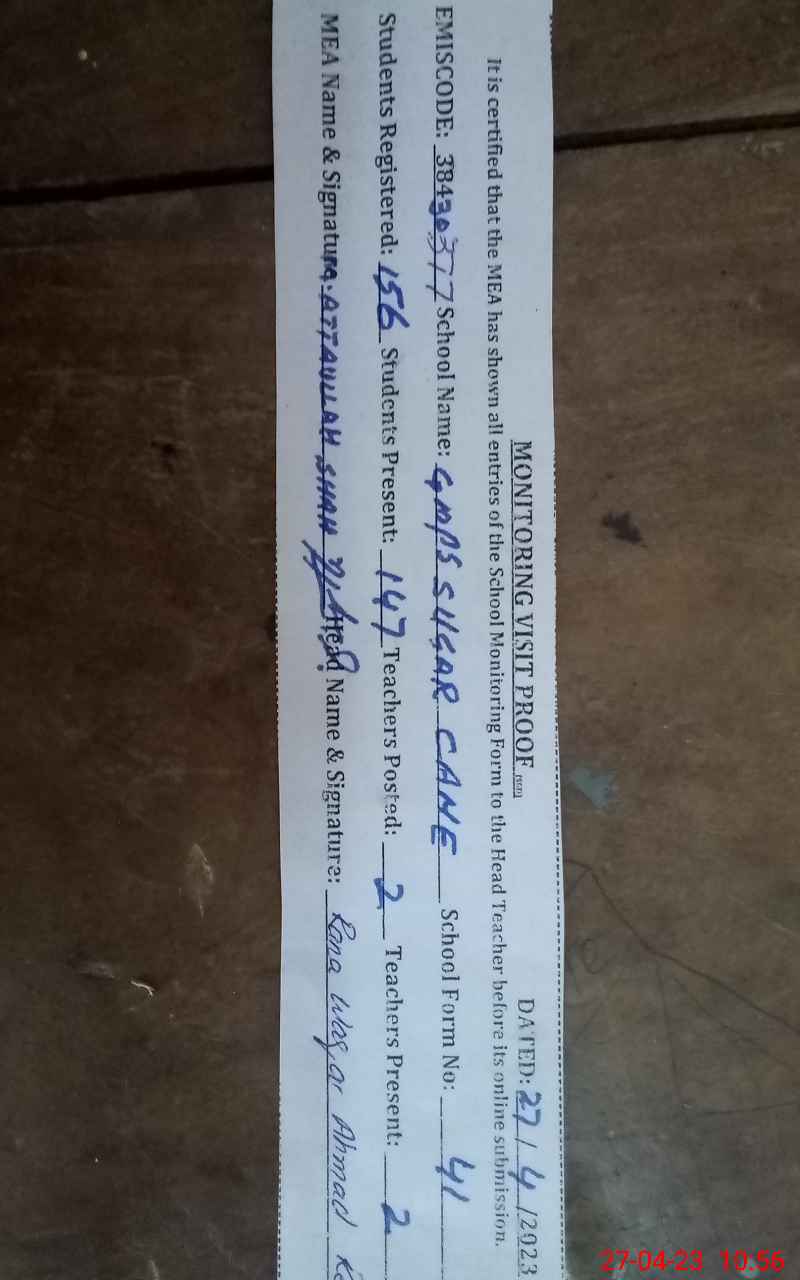 MONITORING VISIT PROOF DATED: 27/4/2023
It is certified that the MEA has shown all entries of the School Monitoring Form to the Head Teacher before its online submission.
EMISCODE: 38430377 School Name: GMPS SUGAR CANE School Form No: 41
Students Registered: 156 Students Present: 147 Teachers Posted: 2 Teachers Present: 2
MEA Name & Signature: ATTAULLAH SHAH Head Name & Signature: Rana Waqar Ahmad
27-04-23 10:56